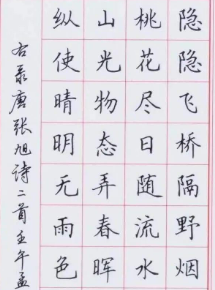 隐隐飞桥隔野烟
桃花尽日随流水
山光物态弄春晖
纵使晴明无雨色
右录唐张旭诗二首壬午孟